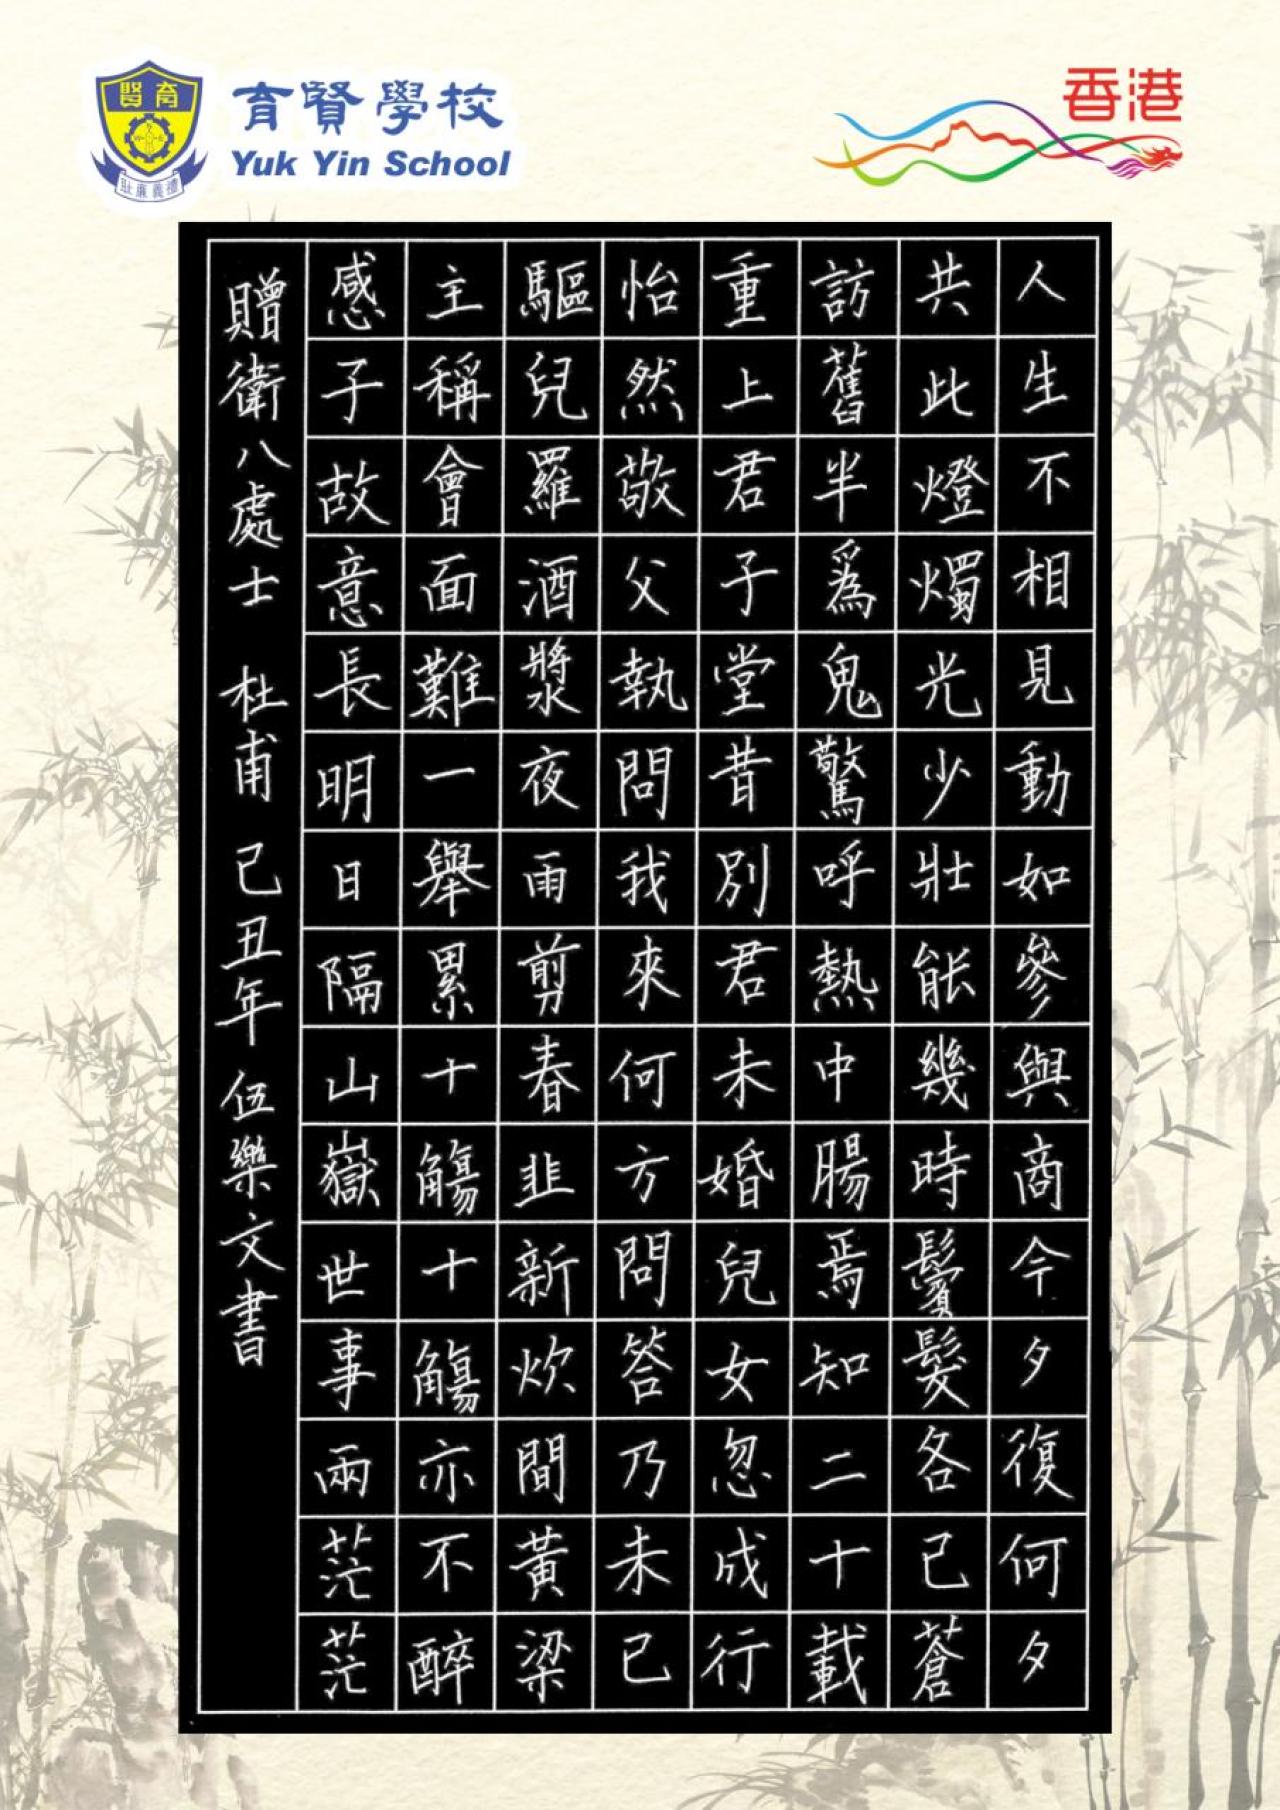 育賢
禮義廉耻
育賢學校
Yuk Yin School
香港
人生不相見動如參與商今夕復何夕
共此燈燭光少壯能幾時鬢髮各已蒼
訪舊半為鬼驚呼熱中腸焉知二十載
重上君子堂昔別君未婚兒女忽成行
怡然敬父執問我來何方問答乃未已
驅兒羅酒漿夜雨剪春韭新炊間黃粱
主稱會面難一舉累十觴十觴亦不醉
感子故意長明日隔山嶽世事兩茫茫
贈衛八處士 杜甫 己丑年 伍樂文書